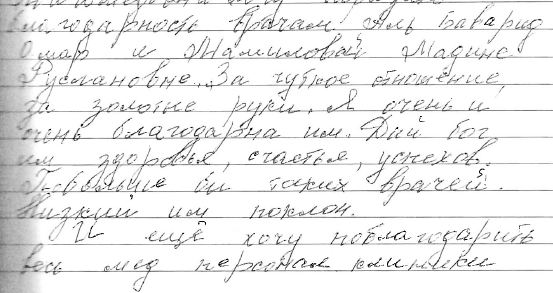 благодарность врачам Аль Баварид
Омар и Жамиловой Мадине
Руслановне. За чуткое отношение,
за золотые руки. Я очень и
очень благодарна им. Дай бог
им здоровья, счастья, успехов.
Побольше бы таких врачей.
Низкий им поклон.
И ещё хочу поблагодарить
весь мед персонал клиники